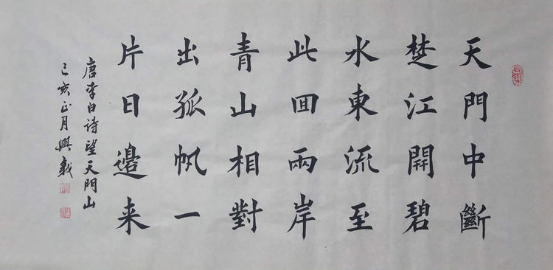 天門中斷
楚江開碧
水東流至
此回兩岸
青山相對
出孤帆一
片日邊来
唐李白诗望天門山
己亥正月興載